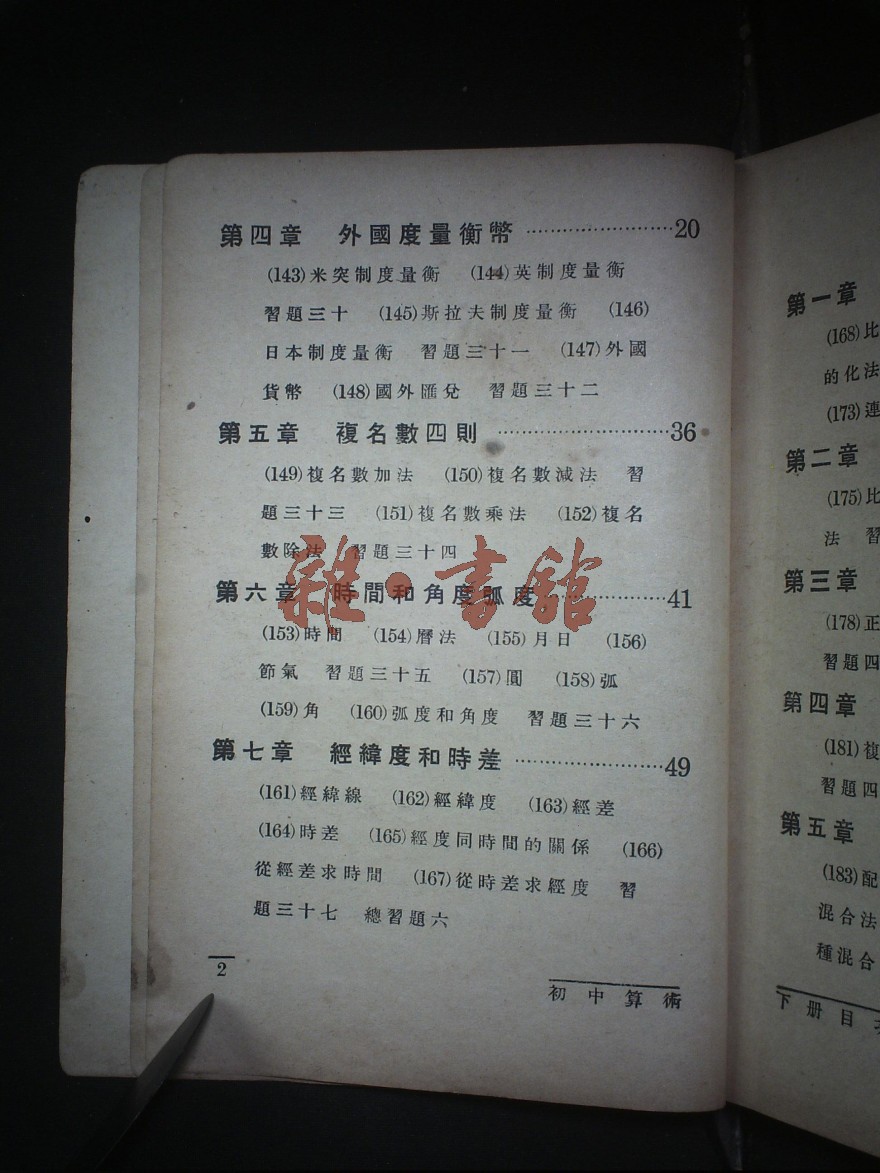 第四章 外國度量衡幣……………………20
(143)米突制度量衡 (144)英制度量衡
習題三十 (145)斯拉夫制度量衡 (146)
日本制度量衡 習題三十一 (147)外國
貨幣 (148)國外匯兌 習題三十二
第五章 複名數四則……………………36
(149)複名數加法 (150)複名數減法 習
題三十三 (151)複名數乘法 (152)複名
數除法 習題三十四
第六章 時間和角度弧度……………41
(153)時間 (154)曆法 (155)月日 (156)
節氣 習題三十五 (157)圓 (158)弧
(159)角 (160)弧度和角度 習題三十六
第七章 經緯度和時差…………………49
(161)經緯線 (162)經緯度 (163)經差
(164)時差 (165)經度同時間的關係 (166)
從經差求時間 (167)從時差求經度 習
題三十七 總習題六
2
初中算術
雜·書館
第一章
(168)比
的化法
(173)連
第二章
(175)比
法 習
第三章
(178)正
習題四
第四章
(181)複
習題四
第五章
(183)配
混合法
種混合
下册目